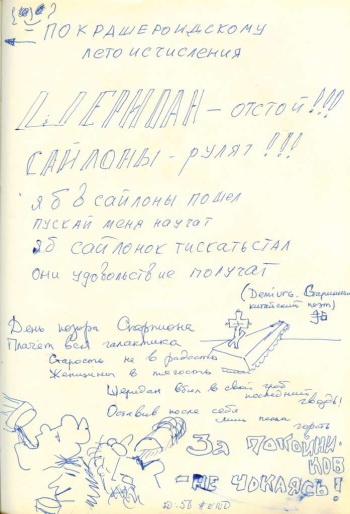 ПО КРАШЕРОИДСКОМУ
летоисчисления
ШЕРИДАН – отстой!!!
САЙЛОНЫ - рулят!!!
Я б в сайлоны пошел
пускай меня научат
Я б сайлонок тискать стал
они удовольствие получат
(Demiurg.
китайский поэт)
День позора
Плачет вся галактика
Старость не в радость
Женщины в тягость
Шеридан вбил в свой гроб
последний гвоздь!
Оставив после себя
лишь
ЗА ПОКОЙНИ-
КОВ
- НЕ ЧОКАЯСЬ!